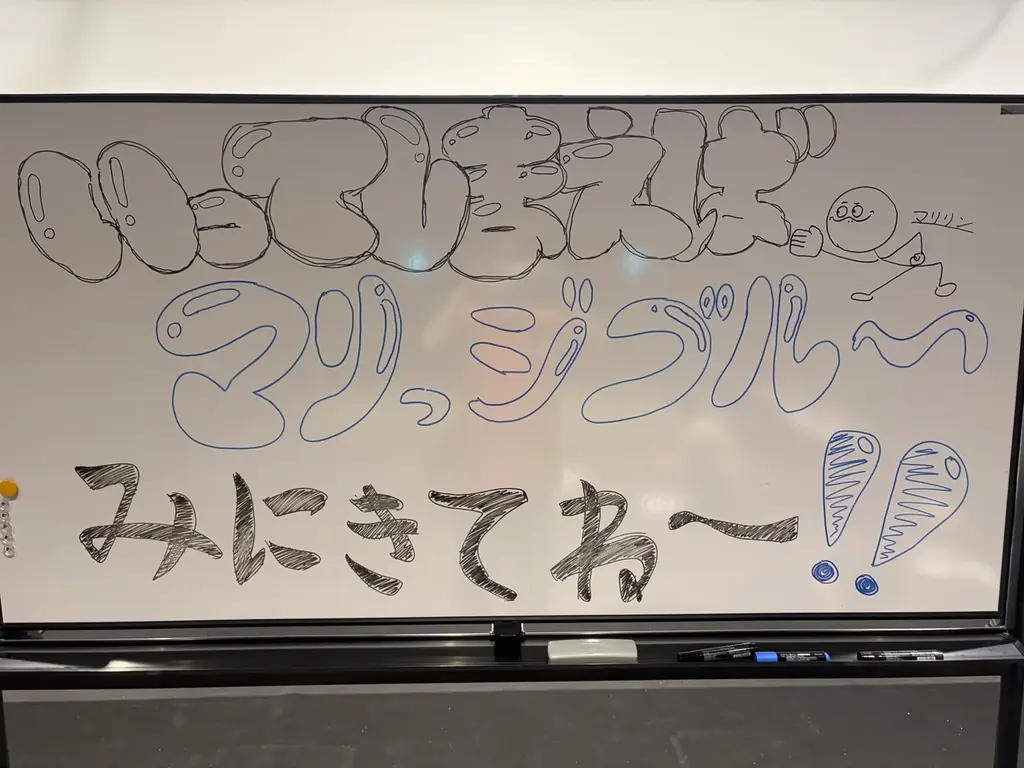 いってしまえば
マリリン
マリ、ジブル〜
みにきてね〜!!